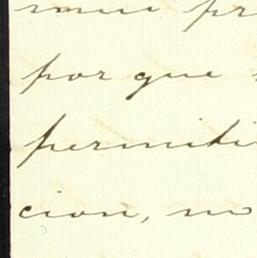 muy pr
por que
permiti
cion, no